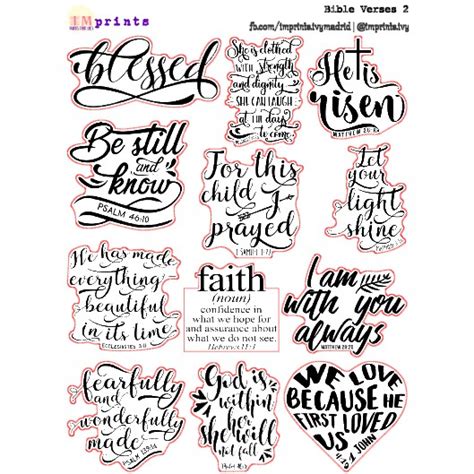 TM prints
Bible Verses 2
fb.com/tmprints.ivymadrid | @tmprints.ivy
blessed
She is clothed
with strength
and dignity
SHE CAN LAUGH
at the days
to come
He is
risen
MATTHEW 28:6
Be still
and
know
PSALM 46:10
For this
child I
prayed
1 SAMUEL 1:27
Let
your
light
shine
He has made
everything
beautiful
in its time
ECCLESIASTES 3:11
faith
(noun)
confidence in
what we hope for
and assurance about
what we do not see.
Hebrews 11:1
I am
with you
always
MATTHEW 28:20
fearfully
and
wonderfully
made
PSALM 139:14
God is
within
her she
will
not fall
WE LOVE
BECAUSE HE
FIRST LOVED
US
4:19 1 JOHN